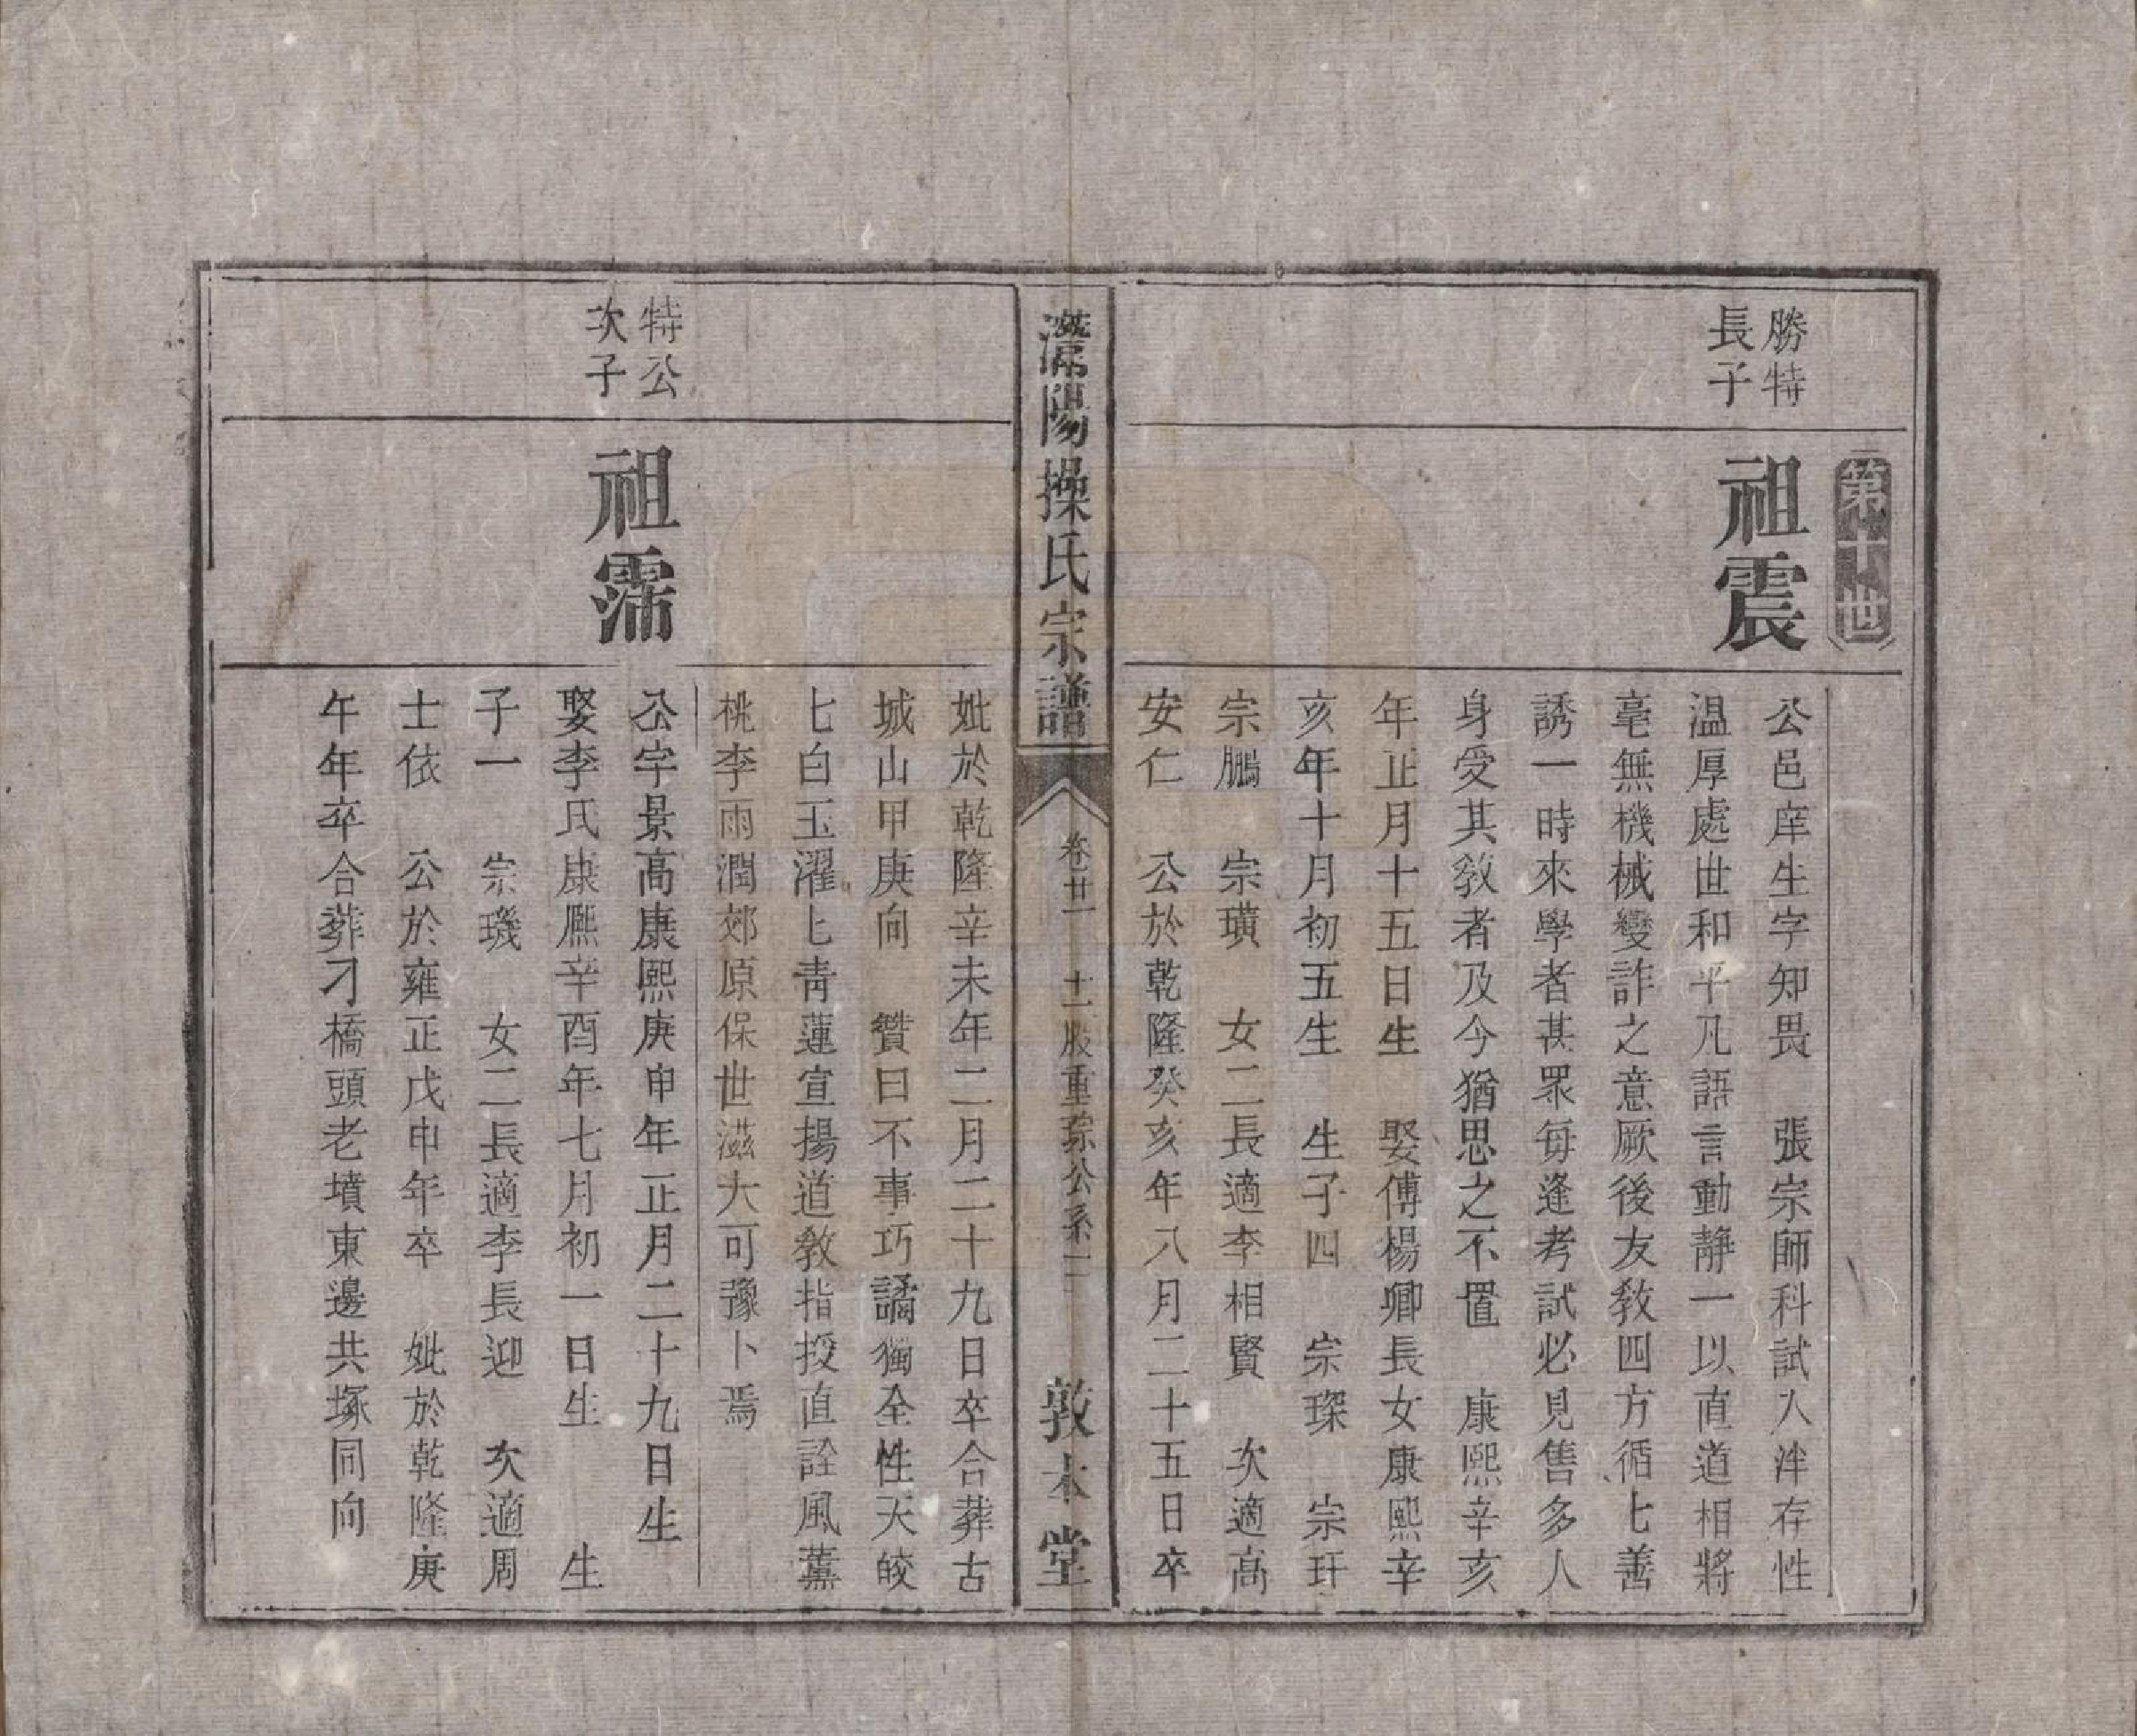 第十世
勝特
長子
祖震
公邑庠生字知畏　張宗師科試入泮存性
温厚處世和平凡語言動靜一以直道相將
毫無機械變詐之意厥後友教四方循七善
誘一時來學者甚眾每逢考試必見售多人
身受其教者及今猶思之不置　康熙辛亥
年正月十五日生　娶傅楊卿長女康熙辛
亥年十月初五生　生子四　宗琛　宗玕
宗鵬　宗璜　女二長適李相賢　次適高
安仁　公於乾隆癸亥年八月二十五日卒
灊陽操氏宗譜
卷廿一　十一股重琮公系
敦本堂
妣於乾隆辛未年二月二十九日卒合葬古
城山甲庚向　贊曰不事巧譎獨全性天皎
七白玉濯七青蓮宣揚道教指授直詮風薰
桃李雨潤郊原保世滋大可豫卜焉
特公
次子
祖霈
公字景高康熙庚申年正月二十九日生
娶李氏康熙辛酉年七月初一日生　　生
子一　宗璣　女二長適李長迎　次適周
士依　公於雍正戊申年卒　妣於乾隆庚
午年卒合葬刁橋頭老墳東邊共塚同向